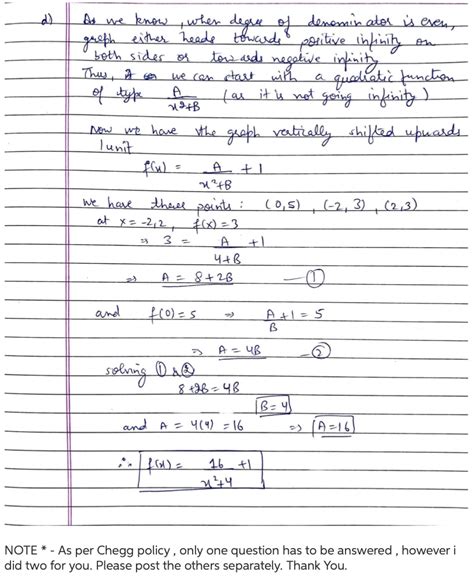 d) As we know, when degree of denominator is even,
graph either heads towards positive infinity on
both sides or towards negative infinity
Thus, we can start with a quadiatic function
of type A/x²+B (as it is not going infinity)
Now we have the graph vertically shifted upwards
1 unit
f(x) = A/x²+B + 1
we have these points : (0,5), (-2,3), (2,3)
at x = -2,2, f(x) = 3
⇒ 3 = A/4+B + 1
⇒ A = 8+2B —①
and f(0) = 5 ⇒ A/B + 1 = 5
⇒ A = 4B —②
solving ① & ②
8+2B = 4B
B = 4
and A = 4(4) = 16 ⇒ A = 16
∴ f(x) = 16/x²+4 + 1
NOTE * - As per Chegg policy , only one question has to be answered , however i
did two for you. Please post the others separately. Thank You.